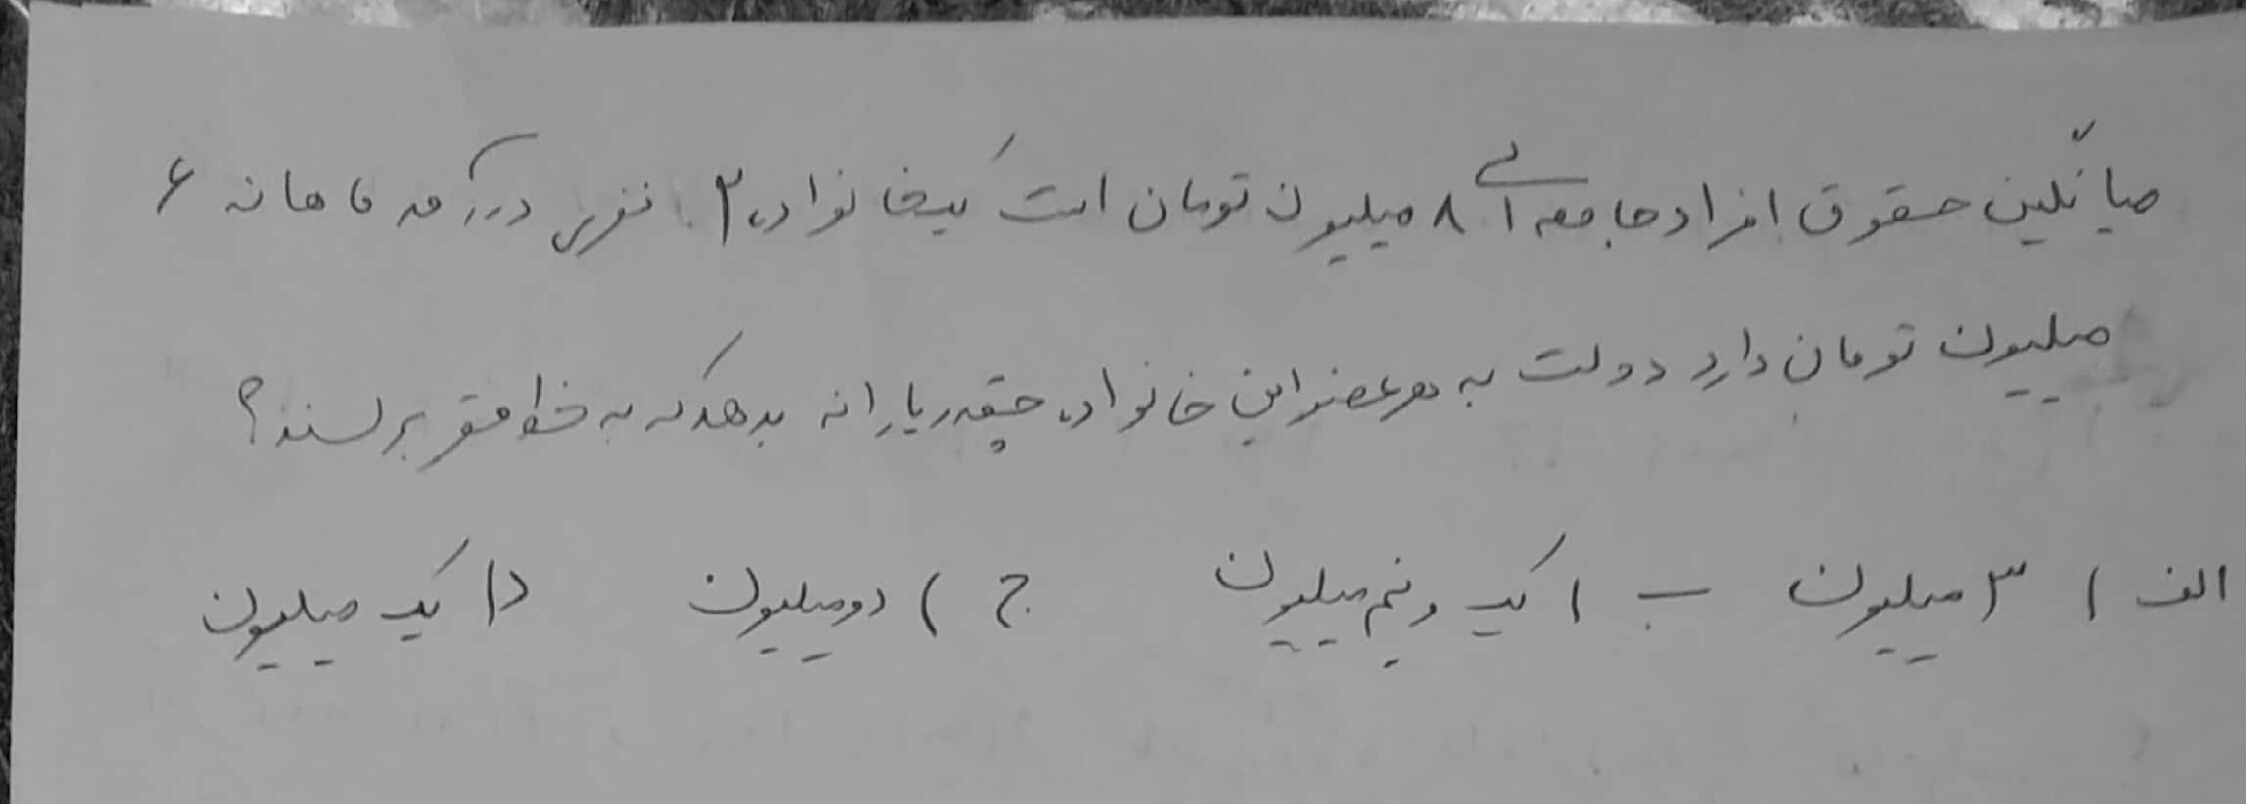 میانگین حقوق افراد جامعه ای ۸ میلیون تومان است یک خانواده ۲ نفری درآمد ماهانه ۶
میلیون تومان دارد دولت به هر عضو این خانواده چقدر یارانه بدهد که به خط فقر برسند؟
الف) ۳ میلیون ب) یک و نیم میلیون ج) دو میلیون د) یک میلیون